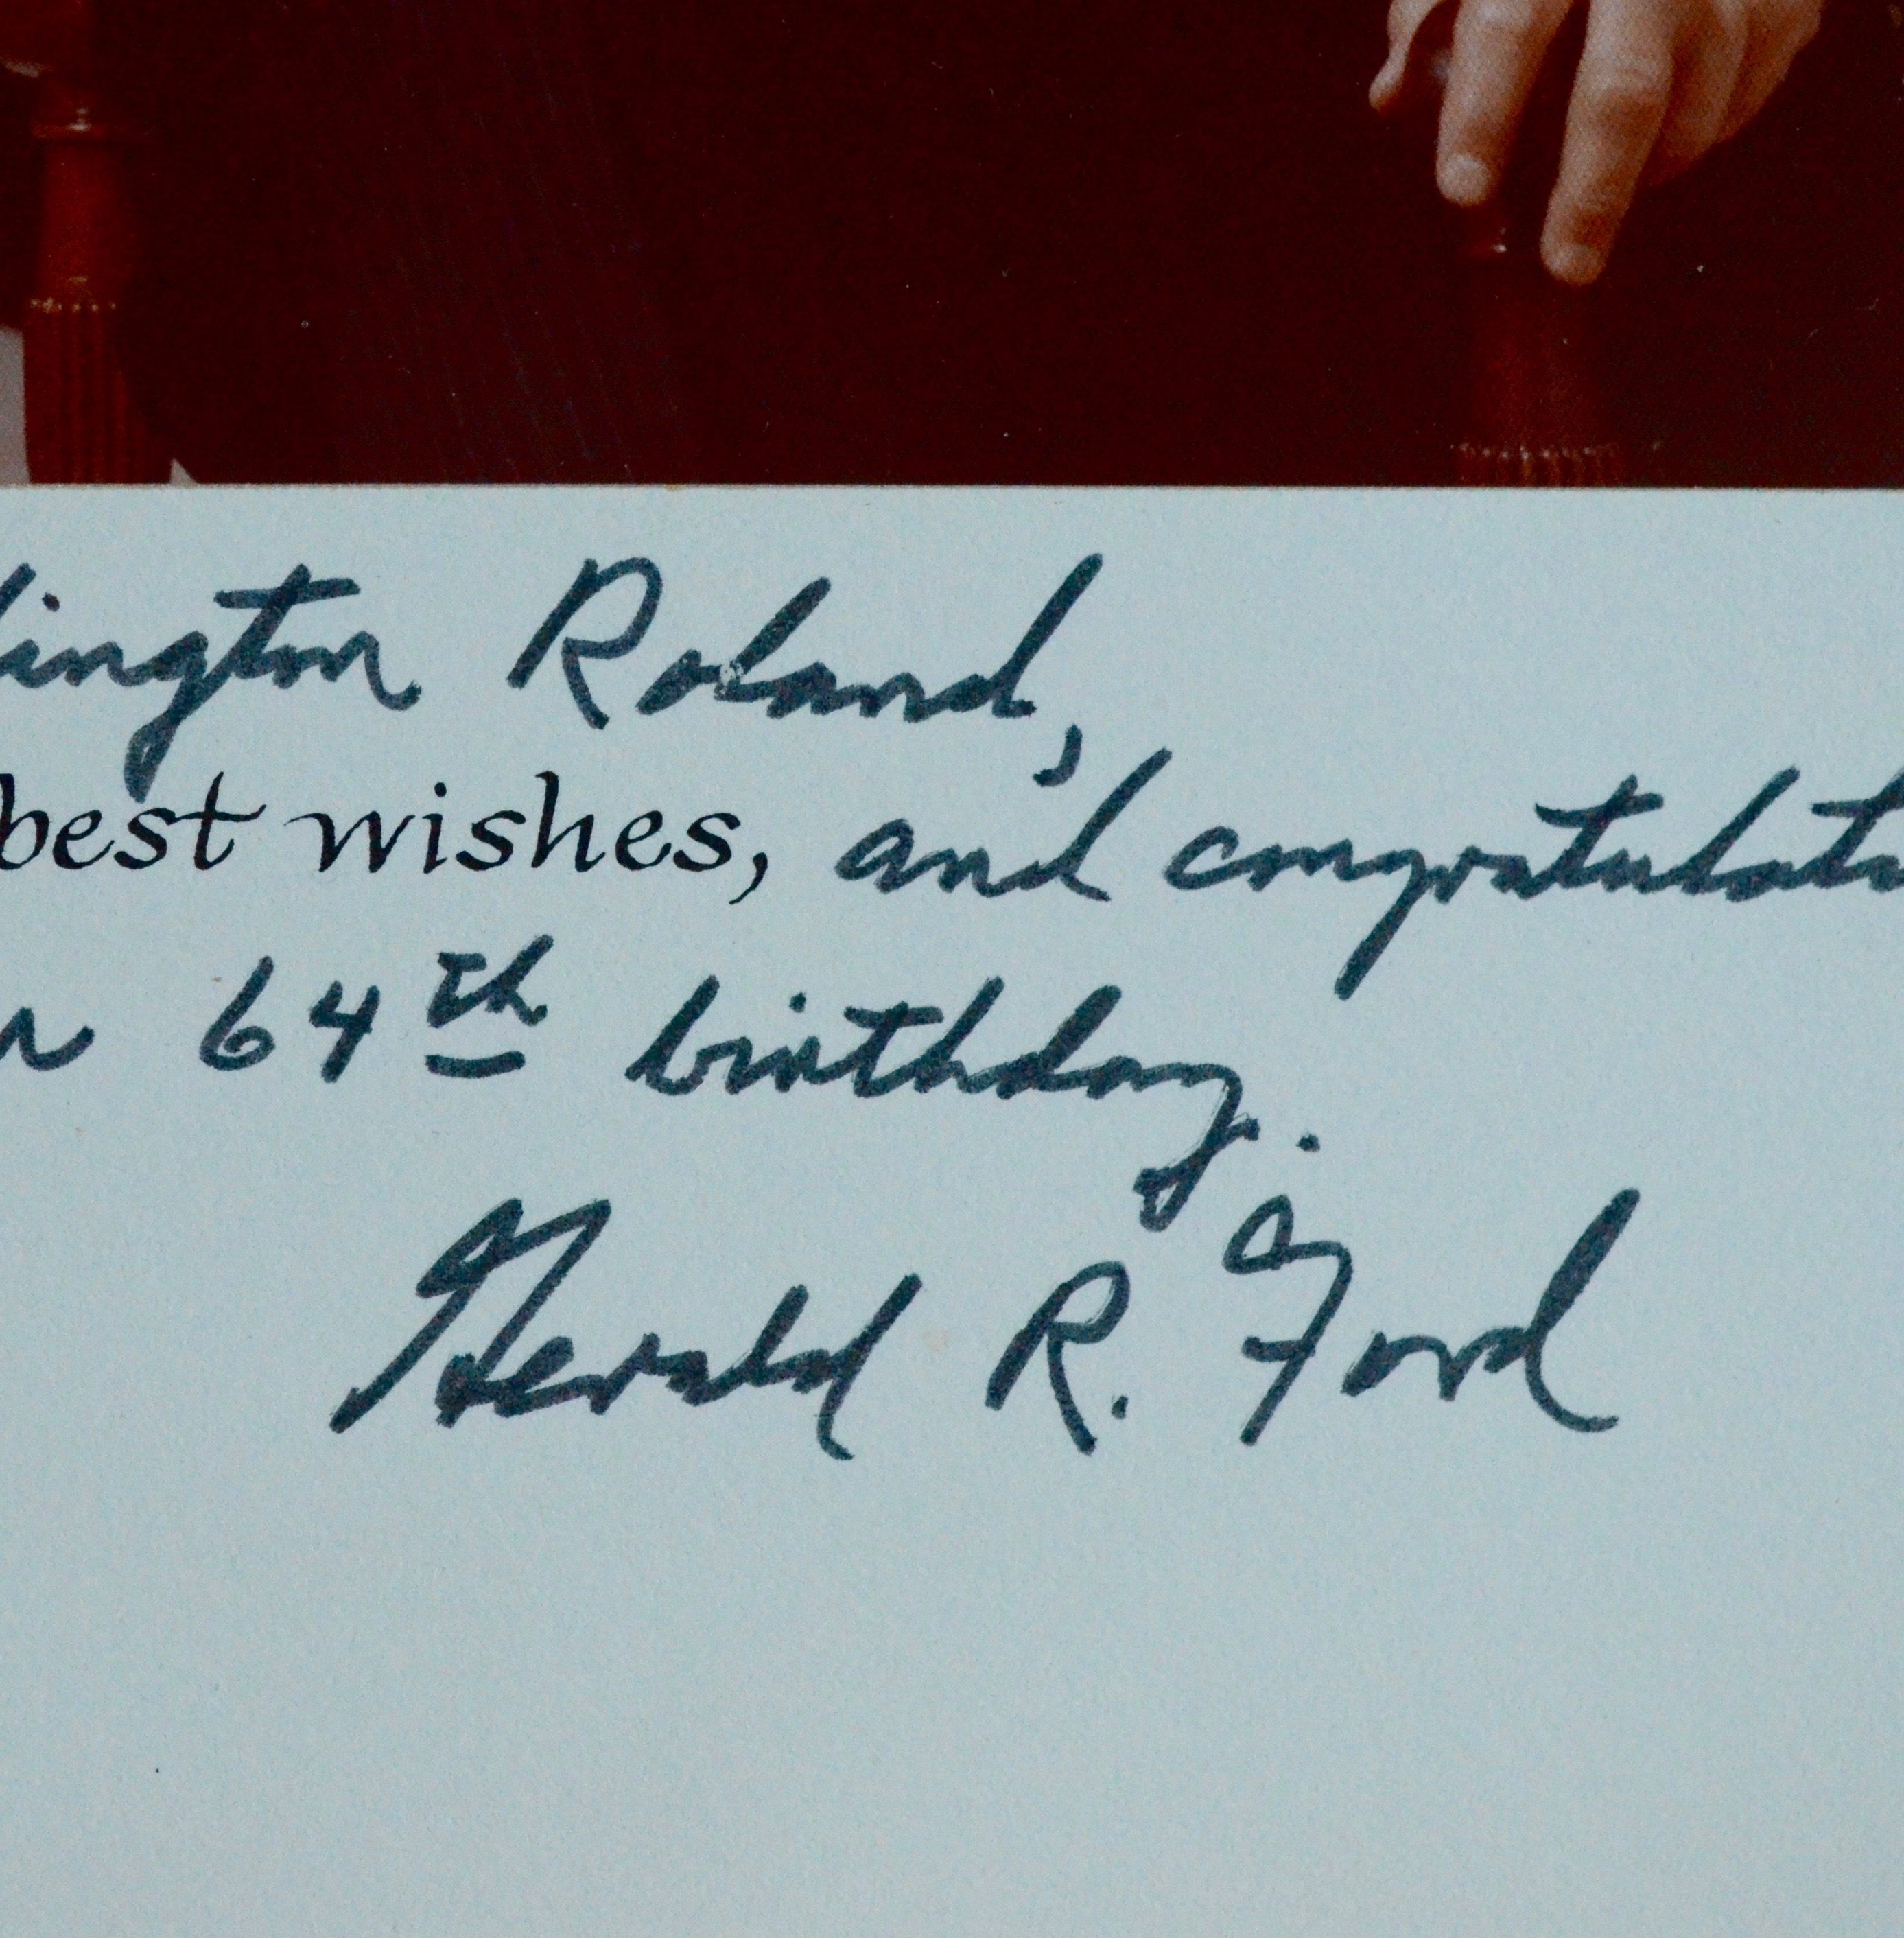 lington Roland,
best wishes, and congratulati
64th birthday.
Gerald R. Ford